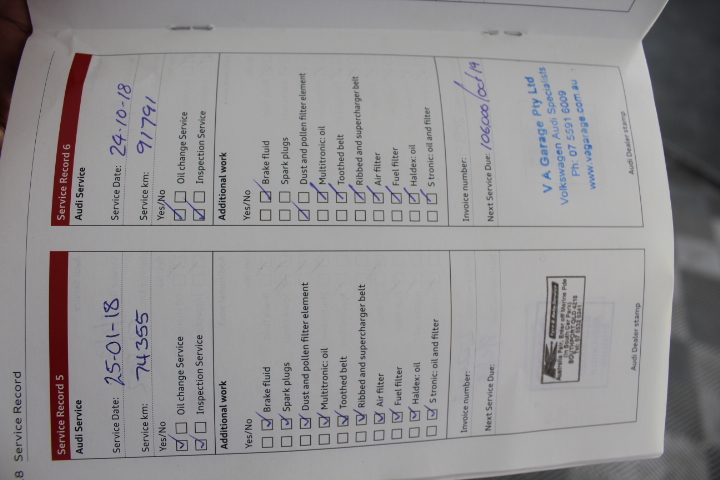 8 Service Record
Service Record 5
Audi Service
Service Date: 25-01-18
Service km: 74355
Yes/No
Oil change Service
Inspection Service
Additional work
Yes/No
Brake fluid
Spark plugs
Dust and pollen filter element
Multitronic: oil
Toothed belt
Ribbed and supercharger belt
Air filter
Fuel filter
Haldex: oil
S tronic: oil and filter
Invoice number:
Next Service Due:
Audi Dealer stamp
Service Record 6
Audi Service
Service Date: 24-10-18
Service km: 91791
Yes/No
Oil change Service
Inspection Service
Additional work
Yes/No
Brake fluid
Spark plugs
Dust and pollen filter element
Multitronic: oil
Toothed belt
Ribbed and supercharger belt
Air filter
Fuel filter
Haldex: oil
S tronic: oil and filter
Invoice number:
Next Service Due: 106000/oct/19
V A Garage Pty Ltd
Volkswagen Audi Specialists
Ph: 07 5591 6009
www.vagarage.com.au
Audi Dealer stamp